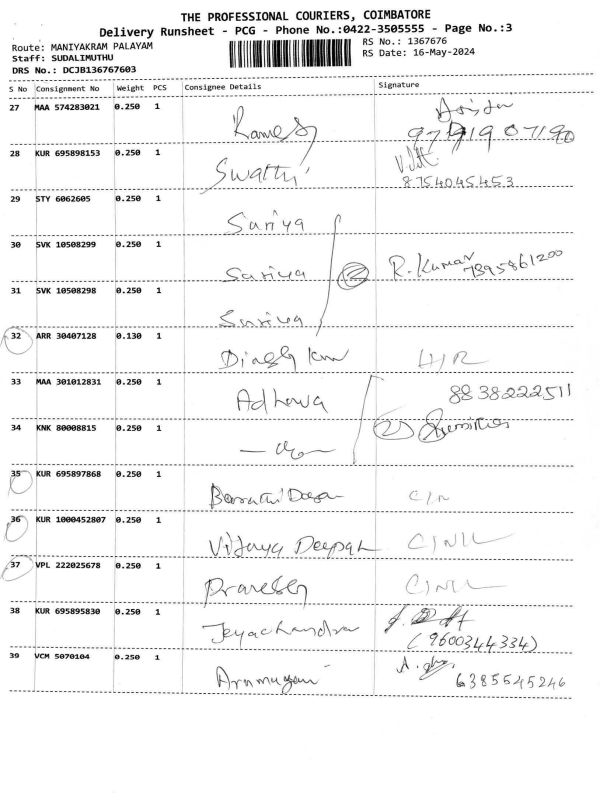 THE PROFESSIONAL COURIERS, COIMBATORE
Delivery Runsheet - PCG - Phone No.:0422-3505555 - Page No.:3
Route: MANIYAKRAM PALAYAM
RS No.: 1367676
Staff: SUDALIMUTHU
RS Date: 16-May-2024
DRS No.: DCJB136767603
S No Consignment No Weight PCS Consignee Details Signature
27 MAA 574283021 0.250 1 Ramesh
28 KUR 695898153 0.250 1 Swathi
8754045453
29 STY 6062605 0.250 1 Sariya
30 SVK 10508299 0.250 1 Sariya (2) R. Kumar
7395861200
31 SVK 10508298 0.250 1 Sariya
32 ARR 30407128 0.130 1 Dinesh km
33 MAA 301012831 0.250 1 Adhava 8838222511
34 KNK 80008815 0.250 1 (2)
35 KUR 695897868 0.250 1
36 KUR 1000452807 0.250 1 Vijaya Deepak
37 VPL 222025678 0.250 1 Pranesh
38 KUR 695895830 0.250 1 Jeyachandran
(9600344334)
39 VCM 5070104 0.250 1 Arumugam
6385545246